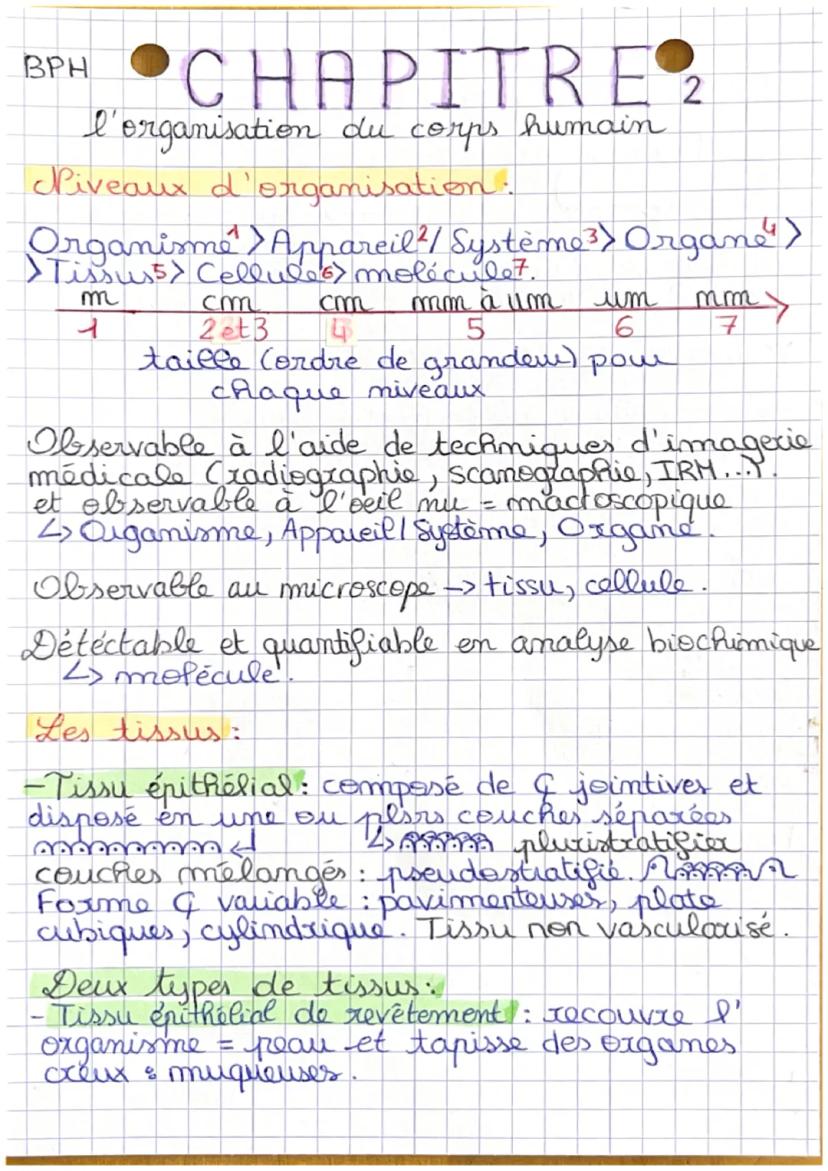 BPH
CHAPITRE 2
l'organisation du corps humain
Niveaux d'organisation :
Organisme1 > Appareil2/ Système3 > Organe4 >
> Tissus5 > Cellule6 > molécule7.
m cm cm mm à um um mm
1 2 et 3 4 5 6 7
taille (ordre de grandeur) pour
chaque niveaux
Observable à l'aide de techniques d'imagerie
médicale (radiographie, scanographie, IRM...).
et observable à l'oeil nu = macroscopique
↳ Organisme, Appareil / Système, Organe.
Observable au microscope -> tissu, cellule.
Détéctable et quantifiable en analyse biochimique
↳ molécule.
Les tissus :
- Tissu épithélial : composé de ₵ jointives et
disposé en une ou plsrs couches séparées
↳ pluristratifier
couches mélangés : pseudostratifié.
Forme ₵ variable : pavimenteuses, plate
cubiques, cylindrique. Tissu non vascularisé.
Deux types de tissus :
- Tissu épithélial de revêtement : recouvre l'
organisme = peau et tapisse des organes
creux : muqueuses.